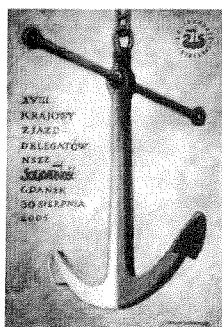 XVIII
KRAJOWY
ZJAZD
DELEGATÓW
NSZZ
Solidarność
GDAŃSK
30 SIERPNIA
2005
25